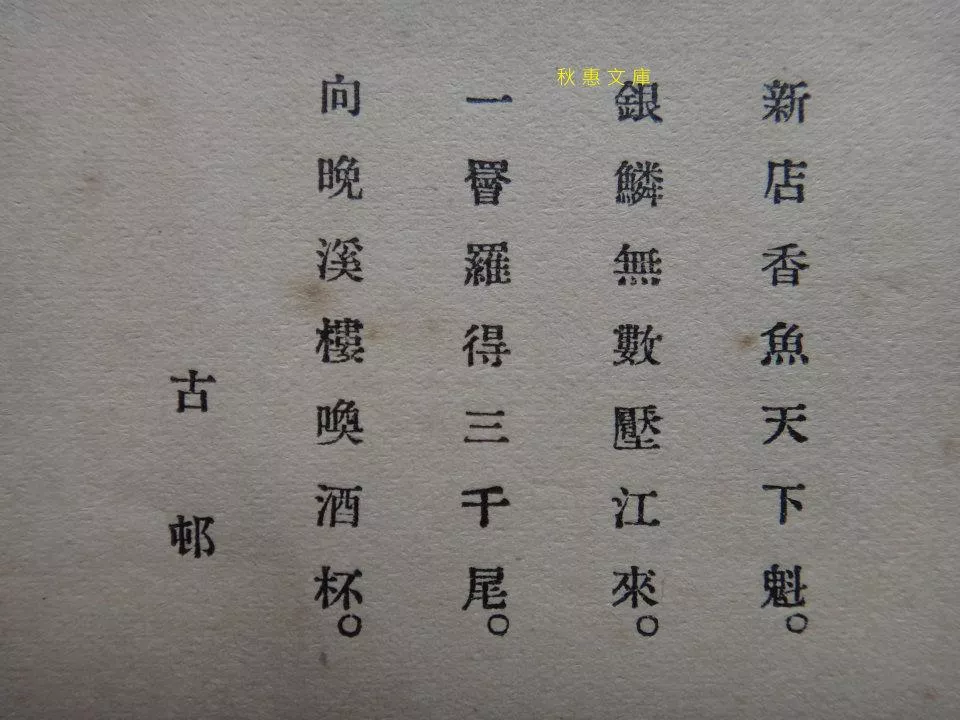 秋惠文庫
新店香魚天下魁。
銀鱗無數壓江來。
一罾羅得三千尾。
向晚溪樓喚酒杯。
古邨